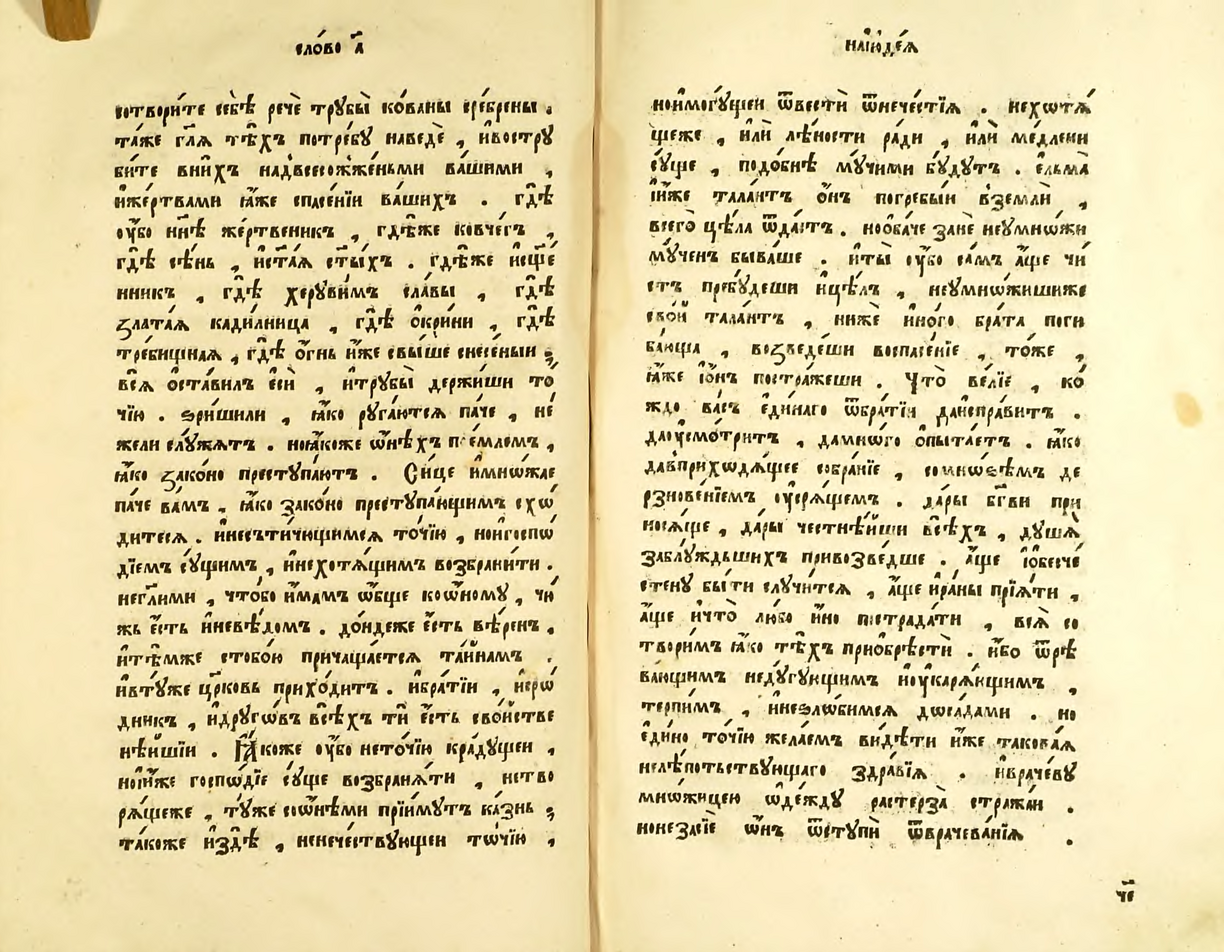 сло́во а҃
сотвори́те себѣ̀ речѐ трꙋбы̀ ко́ваны сре́брены .
та́же гл҃ѧ тѣ́хъ потре́бꙋ наведѐ , ѝвострꙋ
би́те вни́хъ надⸯвсесожже́ньми ва́шими ,
ѝже́ртвами ꙗ҆́же спасе́нїи ва́шихъ . гдѐ
ᲂу҆́бо нн҃ѣ же́ртвеникъ , гдѣ́же ковче́гъ ,
гдѣ̀ сѣ́нь , ѝст҃аѧ ст҃ы́хъ . гдѣ́же ѝсще
нникъ , гдѣ̀ херꙋви́мъ сла́вы , гдѣ̀
ꙁлата́ѧ кади́лница , гдѣ̀ о҆кри́ни , гдѣ̀
тре́бищнаѧ , гдѣ̀ о҆́гнь и҆́же свы́ше снесе́ныи ;
всѧ̀ о҆ста́вилъ є҆сѝ , ѝтрꙋбы̀ держи́ши то́
чїю . ѕри́шили , ꙗ҆́ко рꙋга́ютсѧ па́че , не́
жели слꙋ́жатъ . ноꙗ҆́коже ѡ҆нѣ́хъ п емлемъ ,
ꙗ҆́ко ꙁако́но престꙋпа́ютъ . Си́це и҆мно́жае
па́че ва́мъ , ꙗ҆́ко зако́но престꙋпа́ющимъ схѡ́
дитесѧ . ѝнесътичю́щимсѧ то́чїю , ноѝгоспѡ
дїемъ сꙋ́щимъ , ѝнехотѧ́щимъ возбрани́ти .
негл҃и́ми , что́бо и҆́мамъ ѡ҆́бще коѡ҆́номꙋ , чи́
жь є҆́сть ѝневѣ́домъ . до́ндеже є҆́сть вѣ́ренъ ,
ѝтѣ́мже стобо́ю причаща́етсѧ та́йнамъ .
ѝвтꙋ́же цр҃ковь прихо́дитъ . ѝбра́тїи , ѝсрѡ́
дникъ , ѝдрꙋгѡ́въ всѣ́хъ тѝ є҆́сть сво́йстве
нѣ́йшїи . Ꙗ҆́коже ᲂу҆́бо нето́чїю кра́дꙋщеи ,
ноѝи҆́же госпѡ́дїе сꙋ́ще возбранѧ́ти , нетво
рѧ́щеже , тꙋ́же соѡ҆нѣ́ми прїи́мꙋтъ ка́знь ;
та́коже ѝздѣ̀ , ненече́ствꙋющеи тѡ́чїю ,
наїꙋде́ѧ
ноѝмогꙋ́щеи ѿвестѝ ѿнече́стїѧ . нехотѧ́
щеже , и҆лѝ лѣ́ности ра́ди , и҆лѝ ме́длени
сꙋ́ще , подо́бнѣ мꙋ́чими бꙋ́дꙋтъ . є҆льма̀
ѝи҆́же тала́нтъ о҆́нъ погребы́и вземлѝ ,
всего̀ цѣ́ла ѿда́стъ . нооба́че занѐ неꙋмно́жи
мꙋ́ченъ быва́ше . ѝты̀ ᲂу҆́бо са́мъ а҆́ще чи́
стъ пребꙋ́деши ѝцѣ́лъ , неꙋмно́жишиже
сво́й тала́нтъ , нижѐ и҆но́го бра́та поги
ба́юща , возведе́ши воспасе́нїе , то́же ,
ꙗ҆́же ѝѻ҆́нъ постра́жеши . Что̀ ве́лїе , ко́
ждо ва́съ є҆ди́наго ѿбра́тїи даѝспра́витъ .
даᲂу҆смо́тритъ , дамно́го о҆пыта́етъ . ꙗ҆́ко
давприходѧ́щее собра́нїе , сомно́ѕѣмъ де
рзнове́нїемъ ᲂу҆срѧ́щемъ . да́ры бг҃ви при
носѧ́ще , да́ры честнѣ́йши всѣ́хъ , дꙋ́ша
заблꙋ́ждьшихъ привозве́дше . а҆́ще ѝобесче́
стенꙋ бы́ти слꙋчи́тсѧ , а҆́ще ѝра́ны прїѧ́ти ,
а҆́ще ѝчто̀ лю́бо и҆́но пострада́ти , всѧ̀ со
твори́мъ ꙗ҆́ко тѣ́хъ прио҆брѣстѝ . и҆́бо ѿрѣ
ва́ющимъ недꙋ́гꙋющимъ ѝꙋкарѧ́ющимъ ,
терпи́мъ , ѝнеѕло́бимсѧ доса́дами . но
є҆ди́но то́чїю жела́емъ ви́дѣти и҆́же такова́ѧ
нелѣ́потьствꙋющаго здра́вїѧ . ѝврачевꙋ̀
мно́жицею ѡ҆де́ждꙋ растерза̀ стражаѝ .
нонеза́сїе ѡ҆́нъ ѿстꙋпѝ ѿврачева́нїѧ .
ч҃і